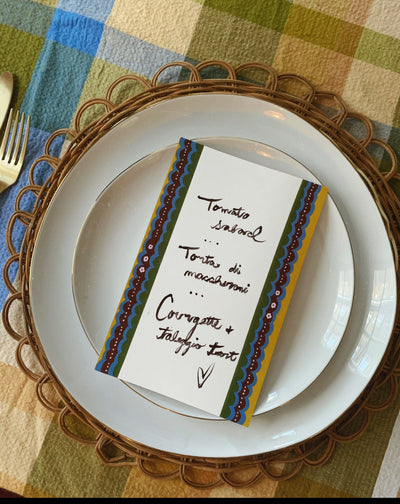 Tomato
salad
...
Torta di
maccheroni
...
Courgette +
taleggio tart